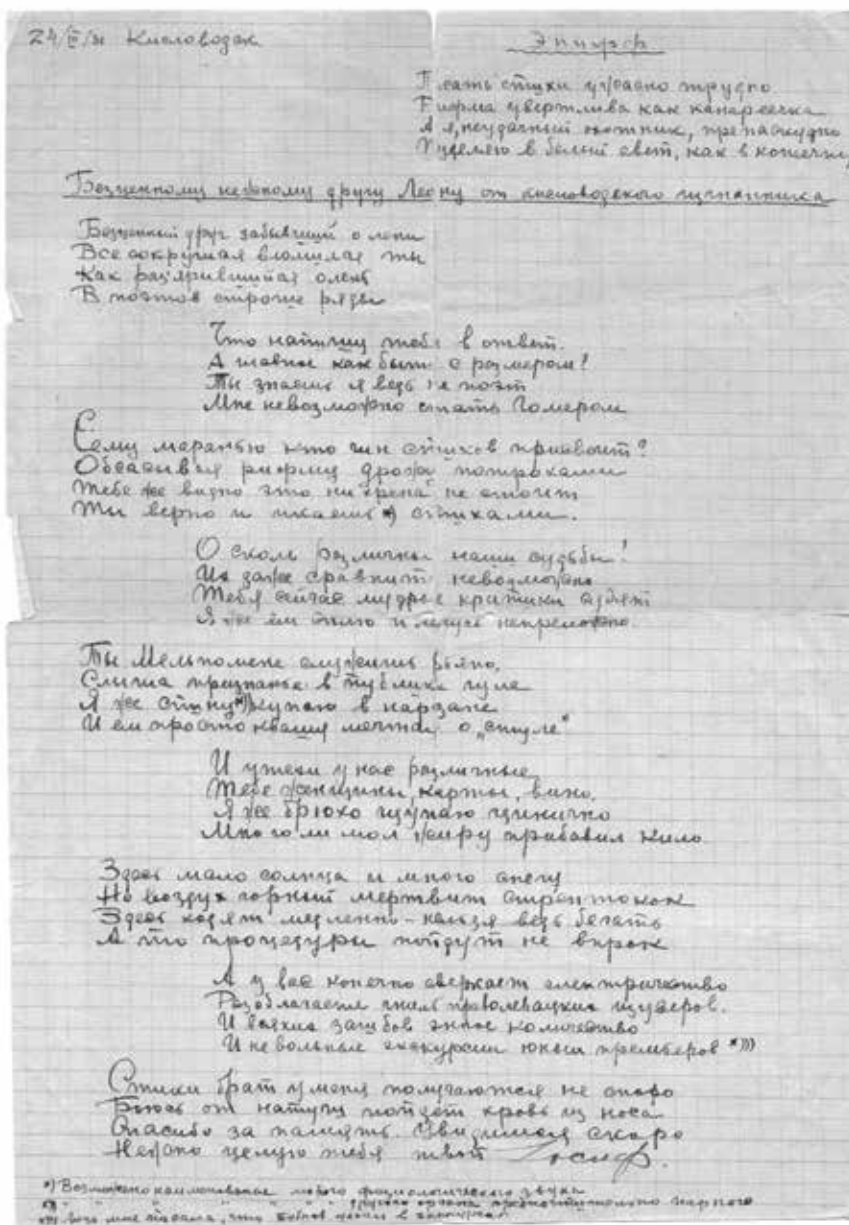 24/III/31 Кисловодск
Эпиграф
Писать стихи ужасно трудно
Рифма увертлива как канареечка
А я, неудачный охотник, препаскудно
в белый свет, как в копеечку
Безценному нежному другу Леону от кисловодского изгнанника
Безценный друг забывший о лени
Все сокрушая вломился ты
Как разъярившийся олень
В поэтов стройные ряды
Что напишу тебе в ответ.
А главное как быть с размером!
Ты знаешь я ведь не поэт
Мне невозможно стать Гомером
Сему маранью кто чин стихов присвоит?
рифму дрожу потрохами
Тебе же видно это ни хрена не стоит
Ты верно и икаешь *) стихами.
О сколь различны наши судьбы!
Их даже сравнить невозможно
Тебя сейчас мудрые критики судят
Я же ем сплю и лечусь непреложно.
Ты Мельпомене служишь рьяно,
Слыша признанье в публики гуле
Я же спину **) купаю в нарзане
И ем простоквашу мечтая о „стуле"
И утехи у нас различные
Тебе женщины, карты, вино,
Я же брюхо щупаю цинично
Много ли мол жиру прибавил кило
Здесь мало солнца и много снегу
Но воздух горный мертвит стрептокок
Здесь ходят медленно – нельзя ведь бегать
А то процедуры пойдут не впрок
А у вас конечно сверкает электричество
Разоблачаете гниль
И всяких загибов энное количество
И невольные экскурсии юных премьеров *)))
Стихи брат у меня получаются не скоро
Боюсь от натуги пойдет кровь из носа
Спасибо за память. Увидимся скоро
Нежно целую тебя твой Иосиф.
*) Возможно наименование любого физиологического звука
**) " " " другого органа предпочтительно парного
***) мне писала, что